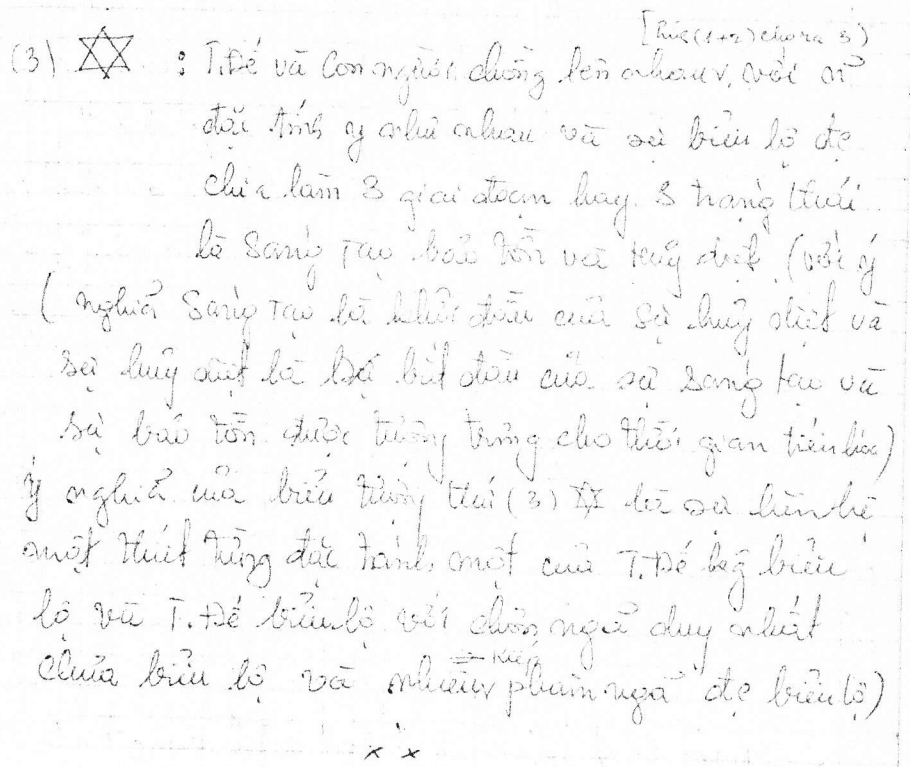 (1+2) 3)
(3) ✡ : T.Đế và con người chồng lên nhau, với
đặc tính y như nhau và sự biểu lộ đc
chia làm 3 giai đoạn hay 3 trạng thái
là Sáng Tạo bảo tồn và hủy diệt (với ý
( nghĩa Sáng Tạo là khởi đầu của sự hủy diệt và
sự hủy diệt là bắt đầu của sự sáng tạo và
sự bảo tồn được tượng trưng cho thời gian tiến hóa)
ý nghĩa của biểu tượng thứ (3) ✡ là sự liên hệ
mật thiết từng đặc tánh một của T.Đế biểu
lộ và T.Đế biểu lộ với chơn ngã duy nhất
chưa biểu lộ và nhiều phàm ngã đc biểu lộ)
x x